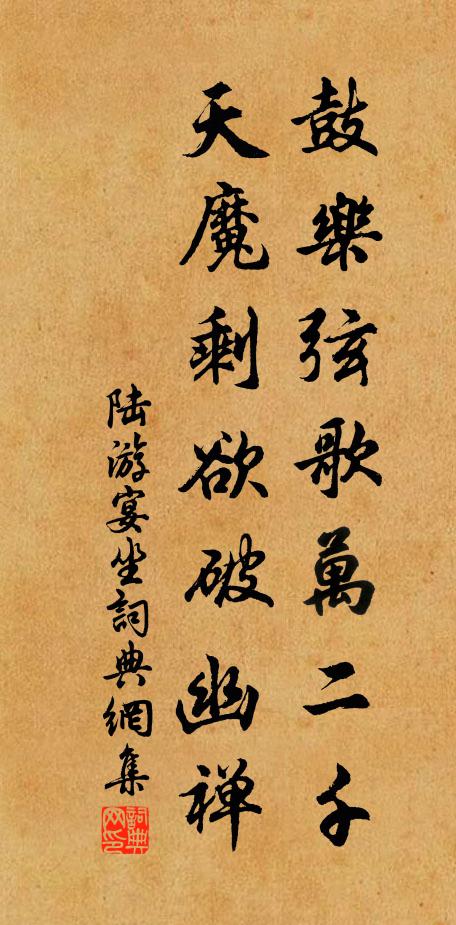 鼓樂弦歌萬二千
天魔剩欲破幽禅
陆游宴坐詞典網集
詞典网印